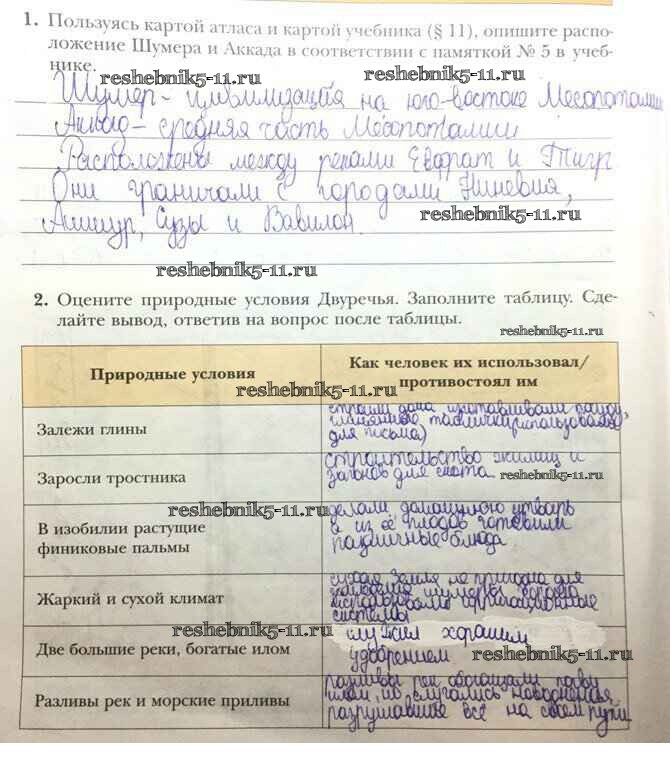 1. Пользуясь картой атласа и картой учебника (§ 11), опишите распо-
ложение Шумера и Аккада в соответствии с памяткой № 5 в учеб-
нике.
reshebnik5-11.ru reshebnik5-11.ru
Шумер - цивилизация на юго-востоке Месопотамии
Аккад - средняя часть Месопотамии
Расположены между реками Евфрат и Тигр
Они граничали с городами Ниневия,
Ашшур, Сузы и Вавилон.
reshebnik5-11.ru
reshebnik5-11.ru
2. Оцените природные условия Двуречья. Заполните таблицу. Сде-
лайте вывод, ответив на вопрос после таблицы.
reshebnik5-11.ru
Природные условия
Как человек их использовал/
противостоял им
reshebnik5-11.ru
Залежи глины
строили дома изготавливали посуду,
глиняные таблички(использовали
для письма)
Заросли тростника
строительство жилищ и
загонов для скота
reshebnik5-11.ru
reshebnik5-11.ru
В изобилии растущие
финиковые пальмы
делали домашнюю утварь
а из её плодов готовили
различные блюда
Жаркий и сухой климат
сухая земля не пригодна для
шумеры
использовали ирригационные
системы
reshebnik5-11.ru
Две большие реки, богатые илом
служил хорошим
удобрением
reshebnik5-11.ru
Разливы рек и морские приливы
разливы рек обогащали почву
илом, но случались наводнения,
разрушавшие всё на своем пути